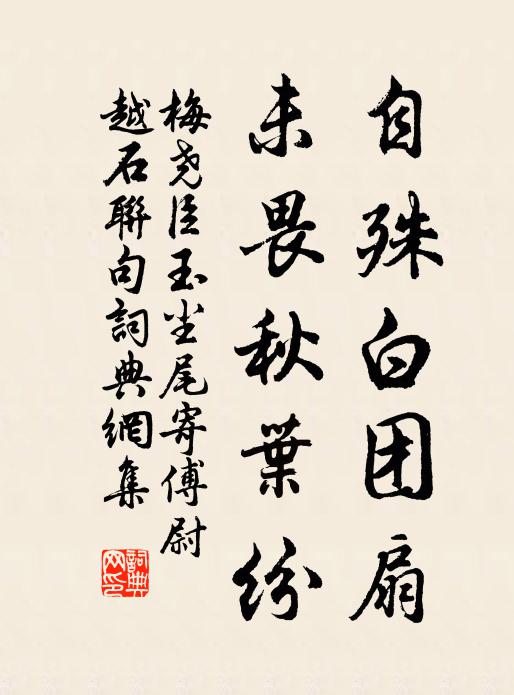 自殊白团扇
未畏秋葉纷
梅尧臣玉尘尾寄傅尉
越石聯句詞典網集
詞典网印